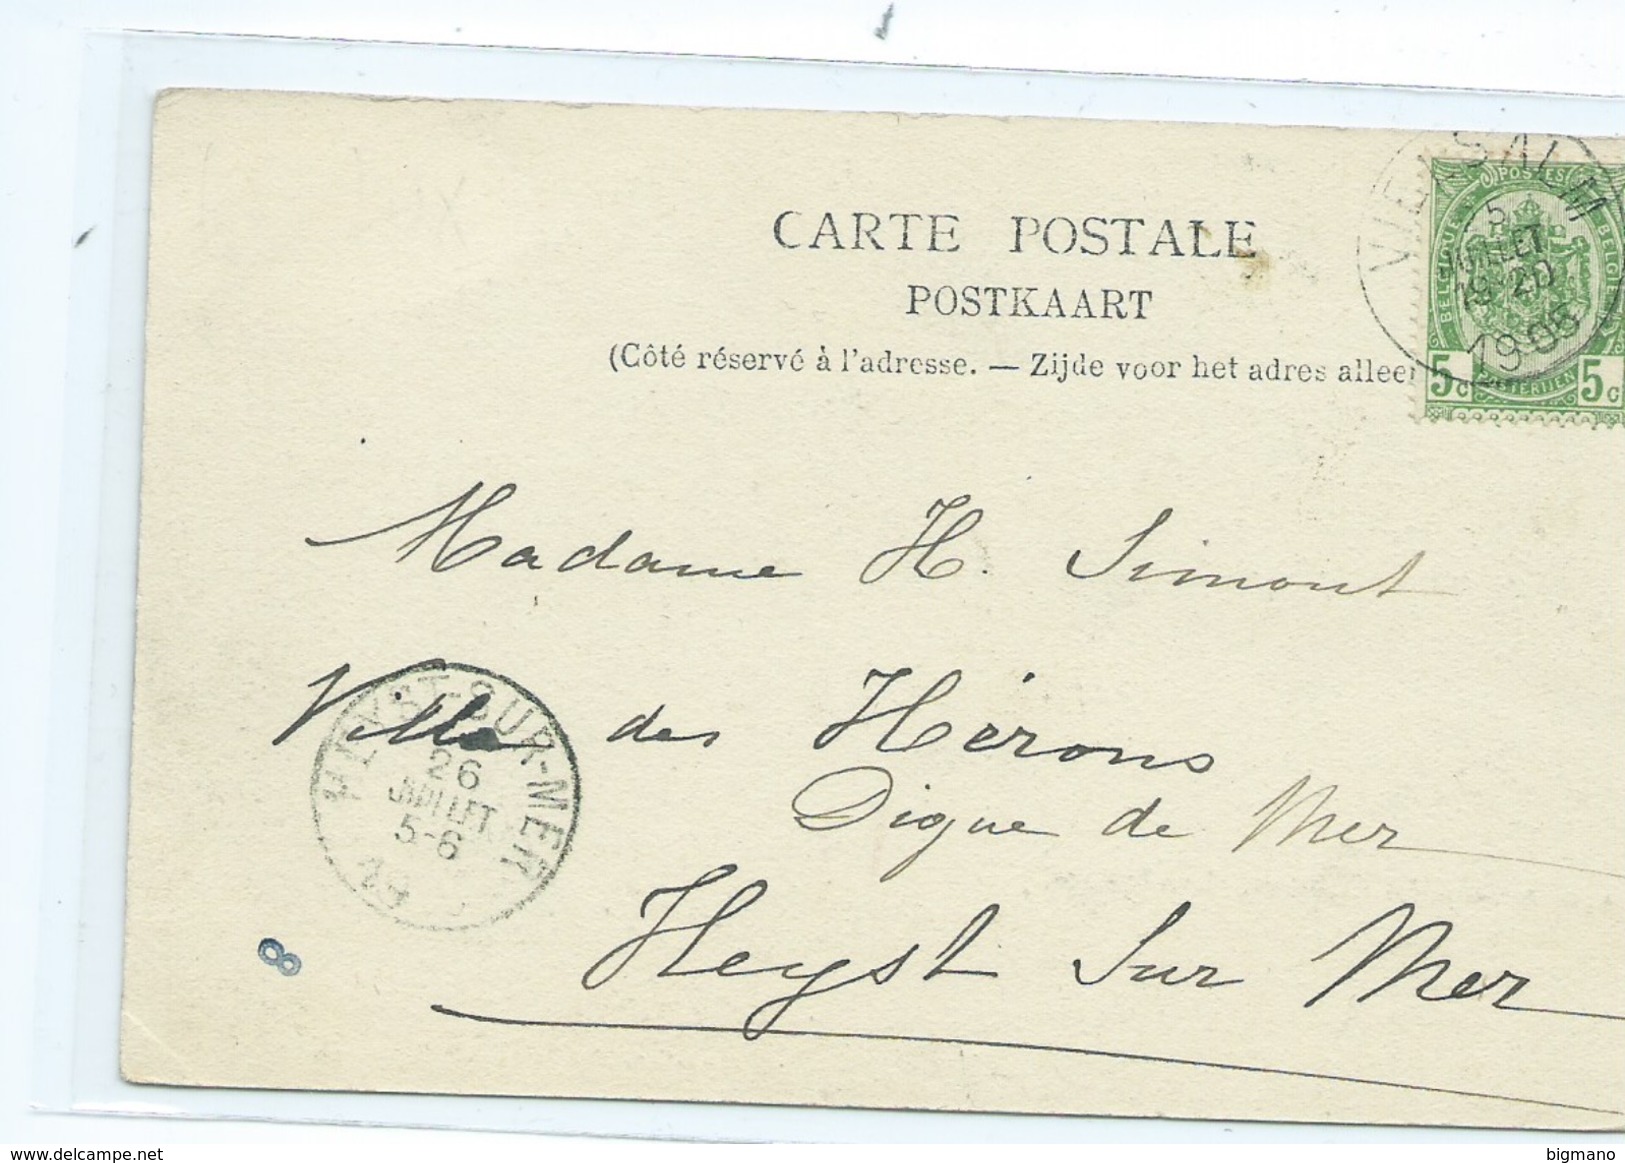 CARTE POSTALE
POSTKAART
(Côté réservé à l'adresse. — Zijde voor het adres alleen
POSTES
BELGIQUE BELGIË
5c 5c
VIELSALM
5
JUILLET
19-20
1905
Madame H. Simont
Villa des Hérons
Digue de Mer
Heyst Sur Mer
HEYST-SUR-MER
26
JUILLET
5-6
8
delcampe.net
bigmano